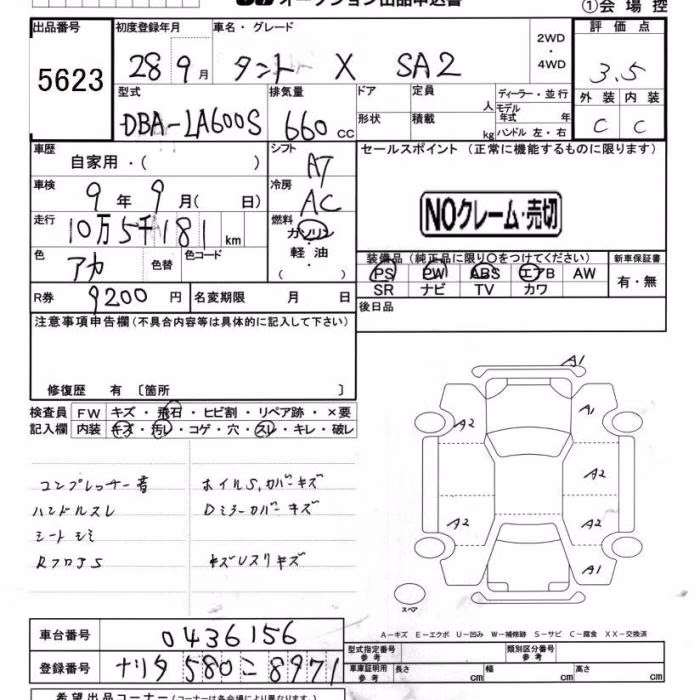 オークション出品申込書
①会場控
出品番号 初度登録年月 車名・グレード 2WD・4WD 評価点
5623 28 9月 タント X SA2 3.5
型式 排気量 ドア 定員 人 ディーラー・並行 外装 内装
DBA-LA600S 660cc 形状 積載 kg モデル年式 年 C C
ハンドル 左・右
車歴 自家用・( ) シフト AT セールスポイント (正常に機能するものに限ります)
車検 9年 9月( 日) 冷房 AC
NOクレーム・売切
走行 10万5千181km 燃料 ガソリン
軽油
( )
色 アカ 色替 色コード 装備品(純正品に限り○をつけてください) 新車保証書
PS PW ABS エアB AW 有・無
R券 9200円 名変期限 月 日 SR ナビ TV カワ
後日品
注意事項申告欄(不具合内容等は具体的に記入して下さい)
修復歴 有〔箇所 〕
検査員 FW キズ・飛石・ヒビ割・リペア跡・×要
記入欄 内装 キズ・汚レ・コゲ・穴・スレ・キレ・破レ
コンプレッサー音 ホイルS,カバーキズ
ハンドルスレ Dミラーカバーキズ
シートシミ
キズUスリキズ
A1
A1
A2
A2
A2
A2
A1
スペア
A－キズ E－エクボ U－凹み W－補修跡 S－サビ C－腐食 XX－交換済
車台番号 0436156
型式指定番号 参考 類別区分番号 参考
登録番号 ナリタ 580 こ 8971
車庫証明用 参考 長さ cm 幅 cm 高さ cm
希望出品コーナー(コーナーは各会場により異なります。)